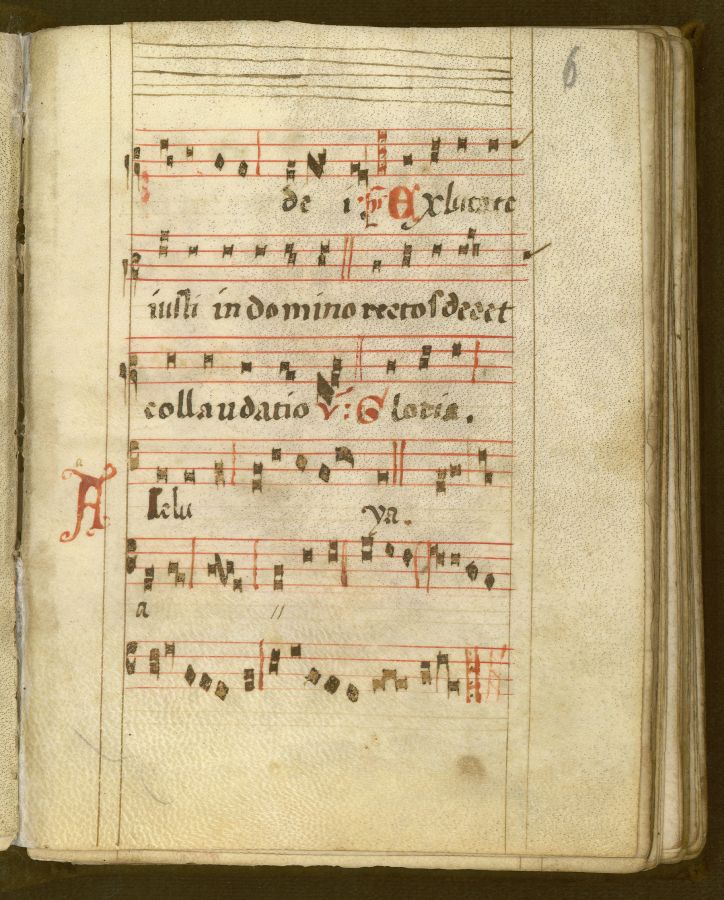 6
de i: ps Exultate
iusti in domino rectos decet
collaudatio V: Gloria.
A lelu ya.
a